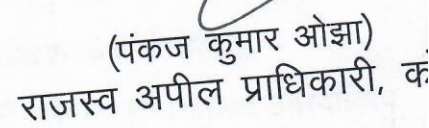 (पंकज कुमार ओझा)
राजस्व अपील प्राधिकारी,